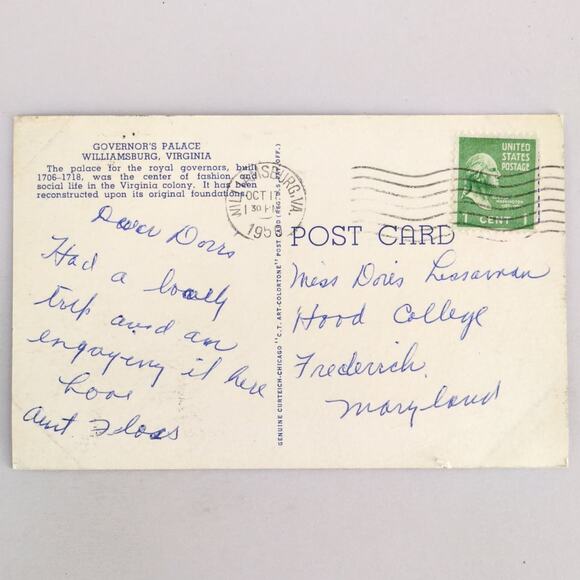 GOVERNOR'S PALACE
WILLIAMSBURG, VIRGINIA
The palace for the royal governors, built
1706-1718, was the center of fashion and
social life in the Virginia colony. It has been
reconstructed upon its original foundations.
Dear Doris
Had a lovely
trip and am
engaying it here
Love
Aunt
GENUINE CURTEICH-CHICAGO "C.T. ART-COLORTONE" POST CARD (REG. U.S. PAT. OFF.)
WILLIAMSBURG, VA.
OCT
30 PM
UNITED
STATES
POSTAGE
WASHINGTON
1 CENT 1
POST CARD
Miss Doris
Hood College
Frederick
Maryland